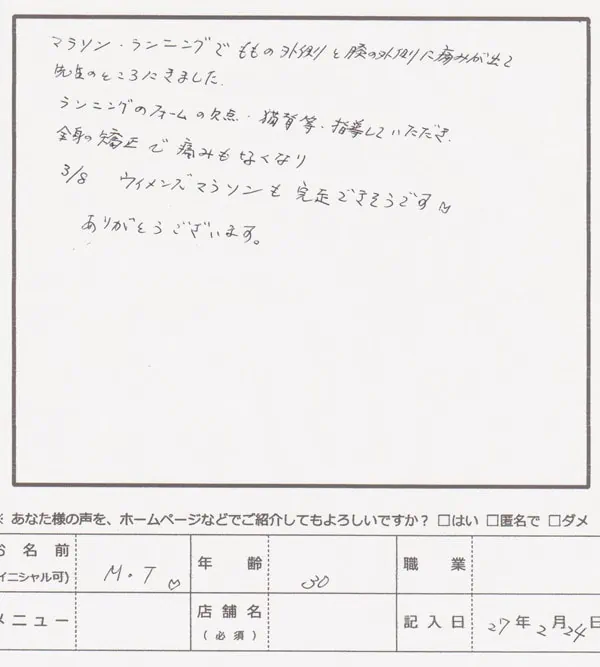 マラソン・ランニングでももの外側と膝の外側に痛みが出て
先生のところにきました。
ランニングのフォームの欠点・猫背等・指導していただき、
全身の矯正で痛みもなくなり
3/8 ウィメンズマラソンも完走できそうです♡
ありがとうございます。
※ あなた様の声を、ホームページなどでご紹介してもよろしいですか？ □はい □匿名で □ダメ
お名前 M・T♡ 年齢 30 職業
(イニシャル可)
メニュー 店舗名 記入日 27年2月24日
(必須)